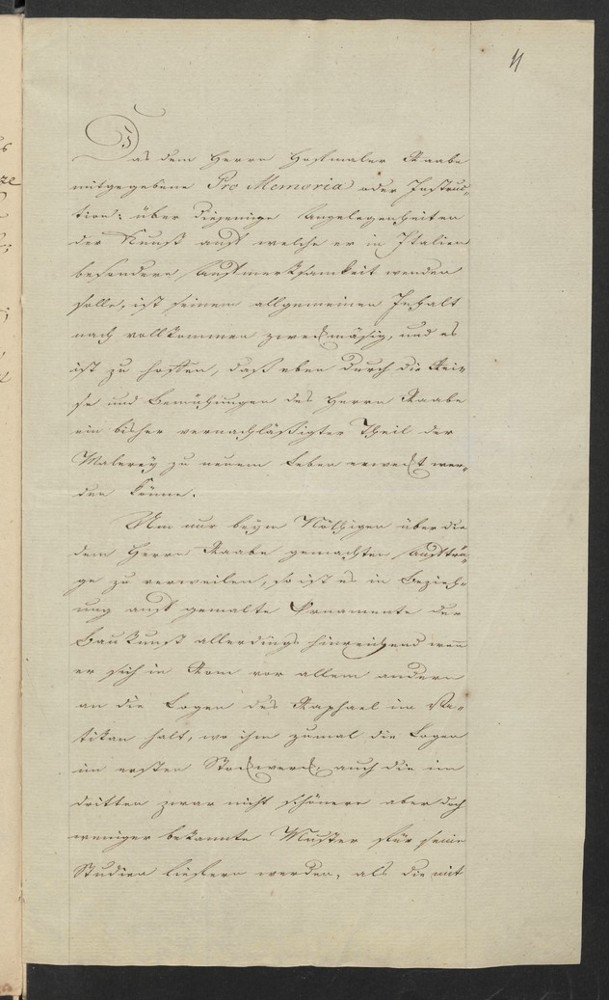 11
Das dem Herrn Hofmaler Raabe
mitgegebene Pro Memoria oder Instruc-
tion: über diejenige Angelegenheiten
der Kunst auf welche er in Italien
besondere Aufmerksamkeit wenden
solle, ist seinem allgemeinen Inhalt
nach vollkommen zweckmäsig, und es
ist zu hoffen, daß eben durch die Rei-
se und Bemühungen des Herrn Raabe
ein bisher vernachläßigter Theil der
Malerey zu neuem Leben erweckt wer-
den könne.
Um nur beym Nöthigen über die
dem Herrn Raabe gemachten Aufträ-
ge zu verweilen, so ist es in Bezieh-
ung auf gemalte Ornamente der
Baukunst allerdings hinreichend wenn
er sich in Rom vor allem andern
an die Logen des Raphael im Va-
tikan hält, wo ihm zumal die Logen
im ersten Stockwerck, auch die im
dritten zwar nicht schönere aber doch
weniger bekannte Muster für seine
Studien liefern werden, als die mit